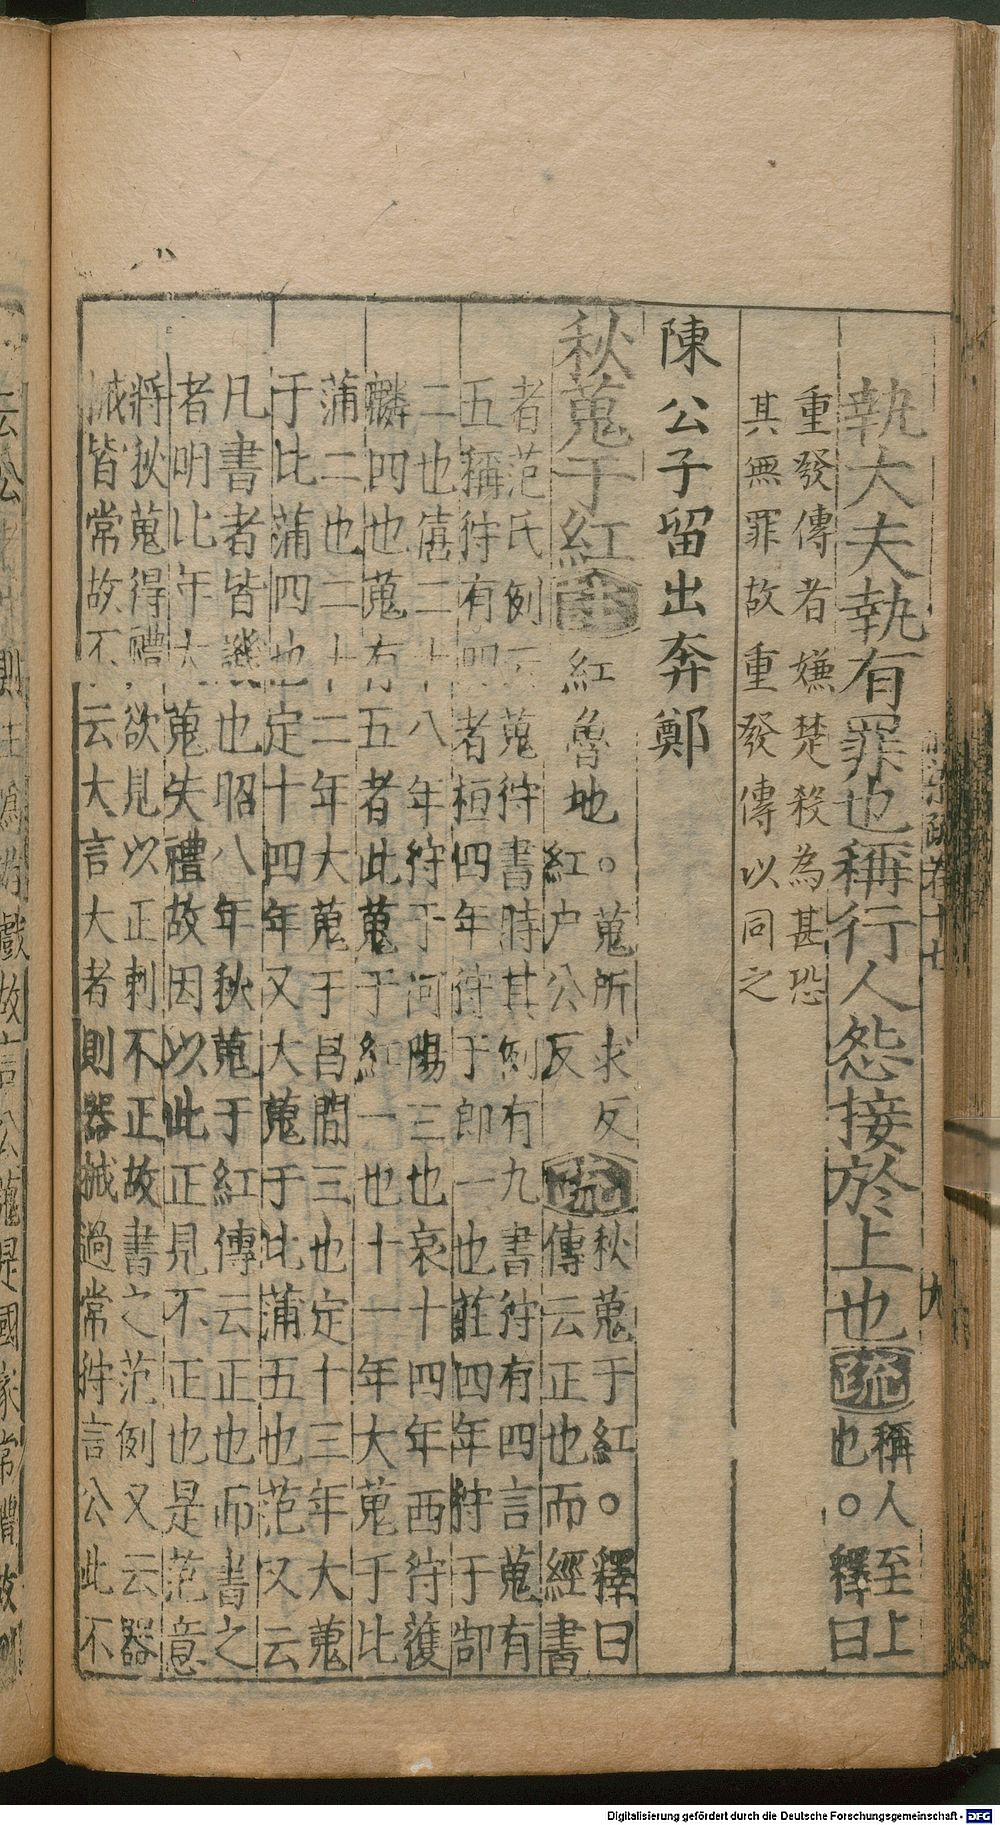 執大夫執有罪也稱行人怨接於上也疏稱人至上
也。釋曰
重發傳者嫌楚殺為甚恐
其無罪故重發傳以同之
陳公子留出奔鄭
秋蒐于紅 紅魯地。蒐所求反
紅户公反 疏 秋蒐于紅。釋曰
傳云正也而經書
者范氏例云蒐狩書時其例有九書狩有四言蒐有
五稱狩有四者桓四年狩于郎一也莊四年狩于郜
二也僖二十八年狩于河陽三也哀十四年西狩獲
麟四也蒐有五者此蒐于紅一也十一年大蒐于比
蒲二也二十二年大蒐于昌間三也定十三年大蒐
于比蒲四也定十四年又大蒐于比蒲五也范又云
凡書者皆譏也昭八年秋蒐于紅傳云正也而書之
者明比年大蒐失禮故因以此正見不正也是范意
將狄蒐得禮欲見以正刺不正故書之范例又云器
械皆常故不云大言大者則器械過常狩言公此不
九
Digitalisierung gefördert durch die Deutsche Forschungsgemeinschaft - DFG